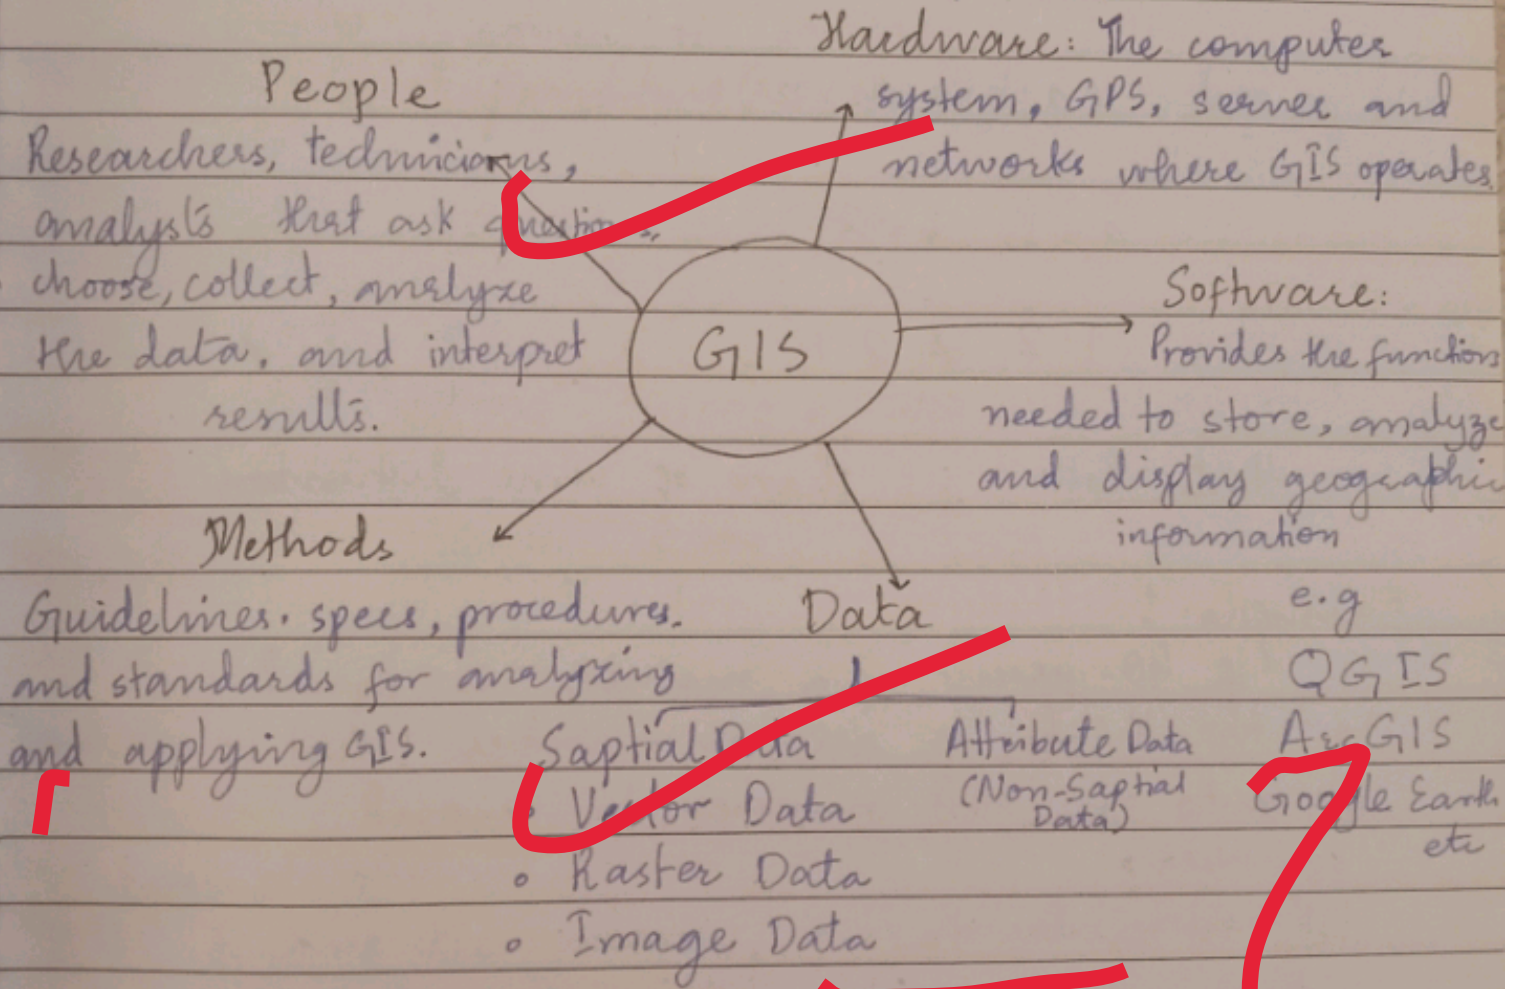 Hardware: The computer
system, GPS, server and
networks where GIS operates.
People
Researchers, technicians,
analysts that ask questions,
choose, collect, analyze
the data, and interpret
results.
GIS
Software:
Provides the functions
needed to store, analyze
and display geographic
information
e.g
QGIS
ArcGIS
Google Earth
etc
Methods
Guidelines. specs, procedures.
and standards for analyzing
and applying GIS.
Data
Saptial Data
• Vector Data
• Raster Data
• Image Data
Attribute Data
(Non-Saptial
Data)